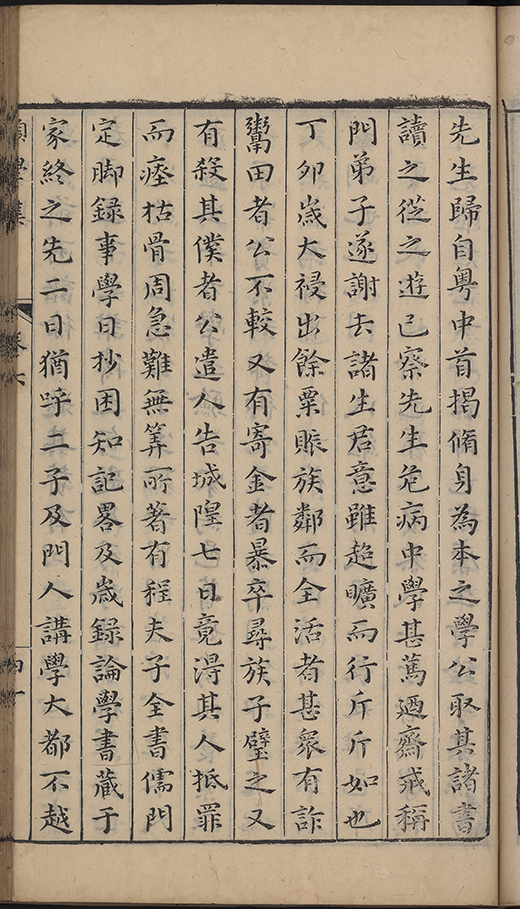 先生歸自粤中首揭脩身為本之學公取其諸書
讀之從之遊已察先生危病中學甚篤廼齋戒稱
門弟子遂謝去諸生君意雖超曠而行斤斤如也
丁卯歲大祲出餘粟賑族鄰而全活者甚衆有詐
鬻田者公不較又有寄金者暴卒尋族子璧之又
有殺其僕者公遣人告城隍七日竟得其人抵罪
而瘞枯骨周急難無筭所著有程夫子全書儒門
定脚録事學日抄困知記畧及歲録論學書藏于
家終之先二日猶呼二子及門人講學大都不越
卷六